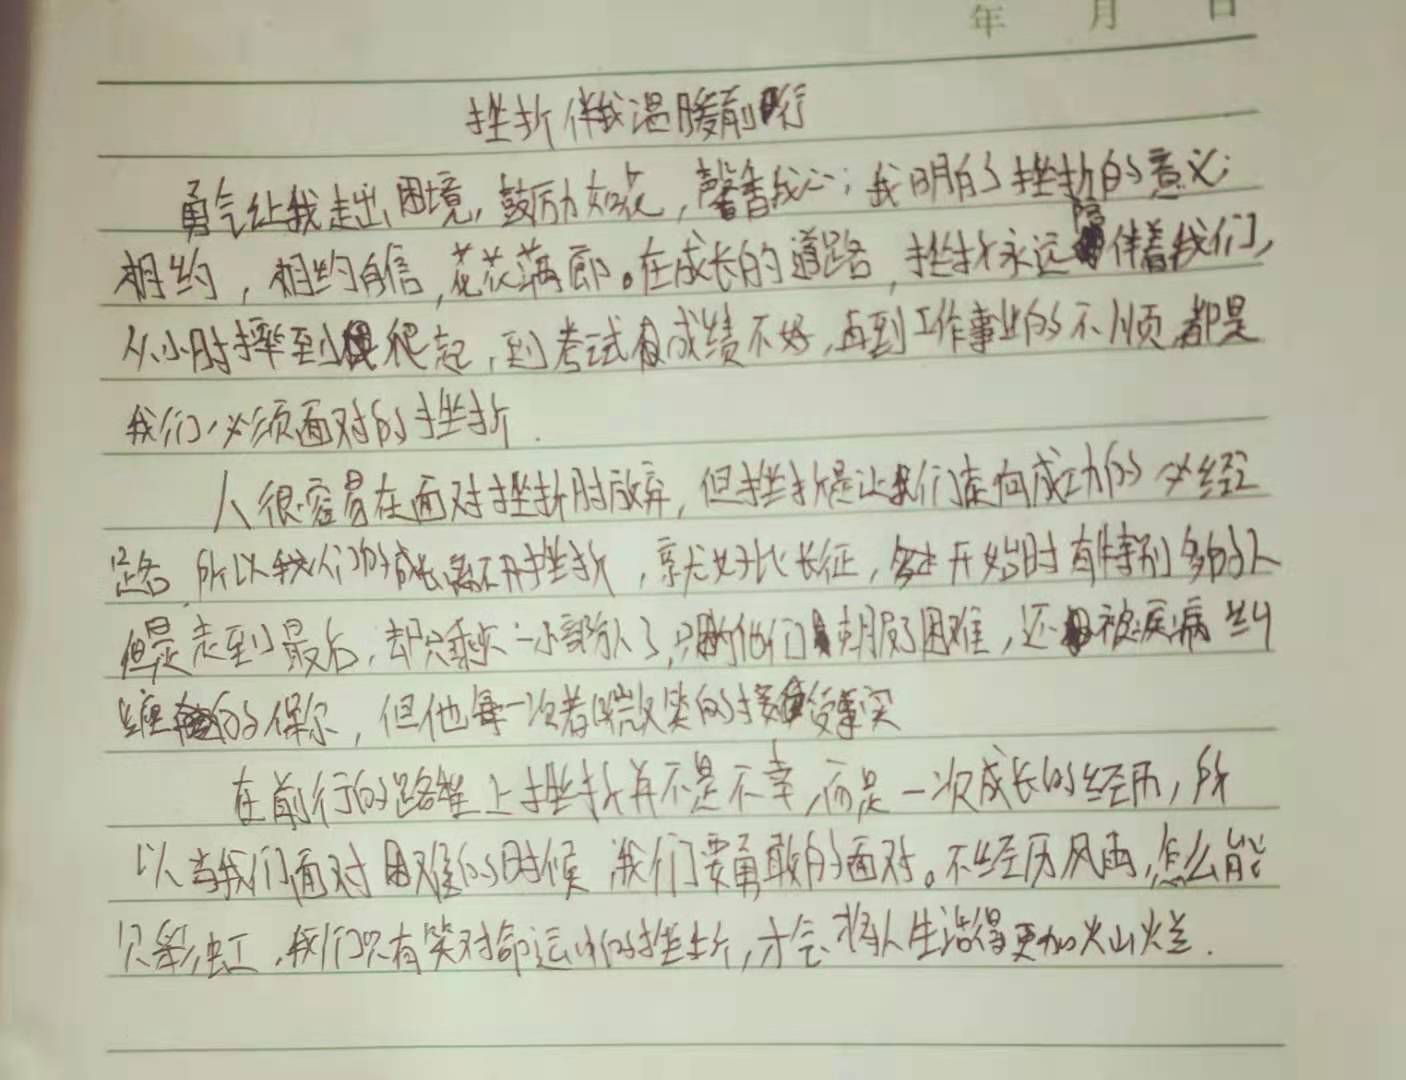 年 月 日
挫折伴我温暖前行
勇气让我走出困境,鼓励如花,馨香我心;我明的了挫折的意义;
相约,相约自信,花花满郎。在成长的道路,挫折永远陪伴着我们,
从小时摔到爬起,到考试成绩不好,再到工作事业的不顺,都是
我们必须面对的挫折.
人很容易在面对挫折时放弃,但挫折是让我们走向成功的必经
路,所以我们的成长离不开挫折,就好比长征,开始时有特别多的人
但是走到最后,却只剩一小部分人了,他们克服了困难,还被疾病
缠的保尔,但他每一次都微笑的接受事实
在前行的路上挫折并不是不幸,而是一次成长的经历,所
以当我们面对困难的时候,我们要勇敢的面对。不经历风雨,怎么能
见彩虹,我们只有笑对命运中的挫折,才会将人生活得更加灿烂.